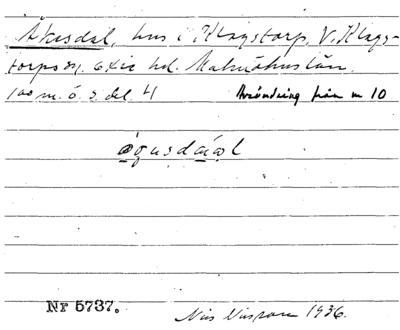 Åkesdal, hus i Klagstorp, V. Klags-
torps sn, Oxie hd. Malmöhus län.
100 m. ö. s. del. 4 Användning från nr 10
Nr 5737.
Nils Nilsson 1936.